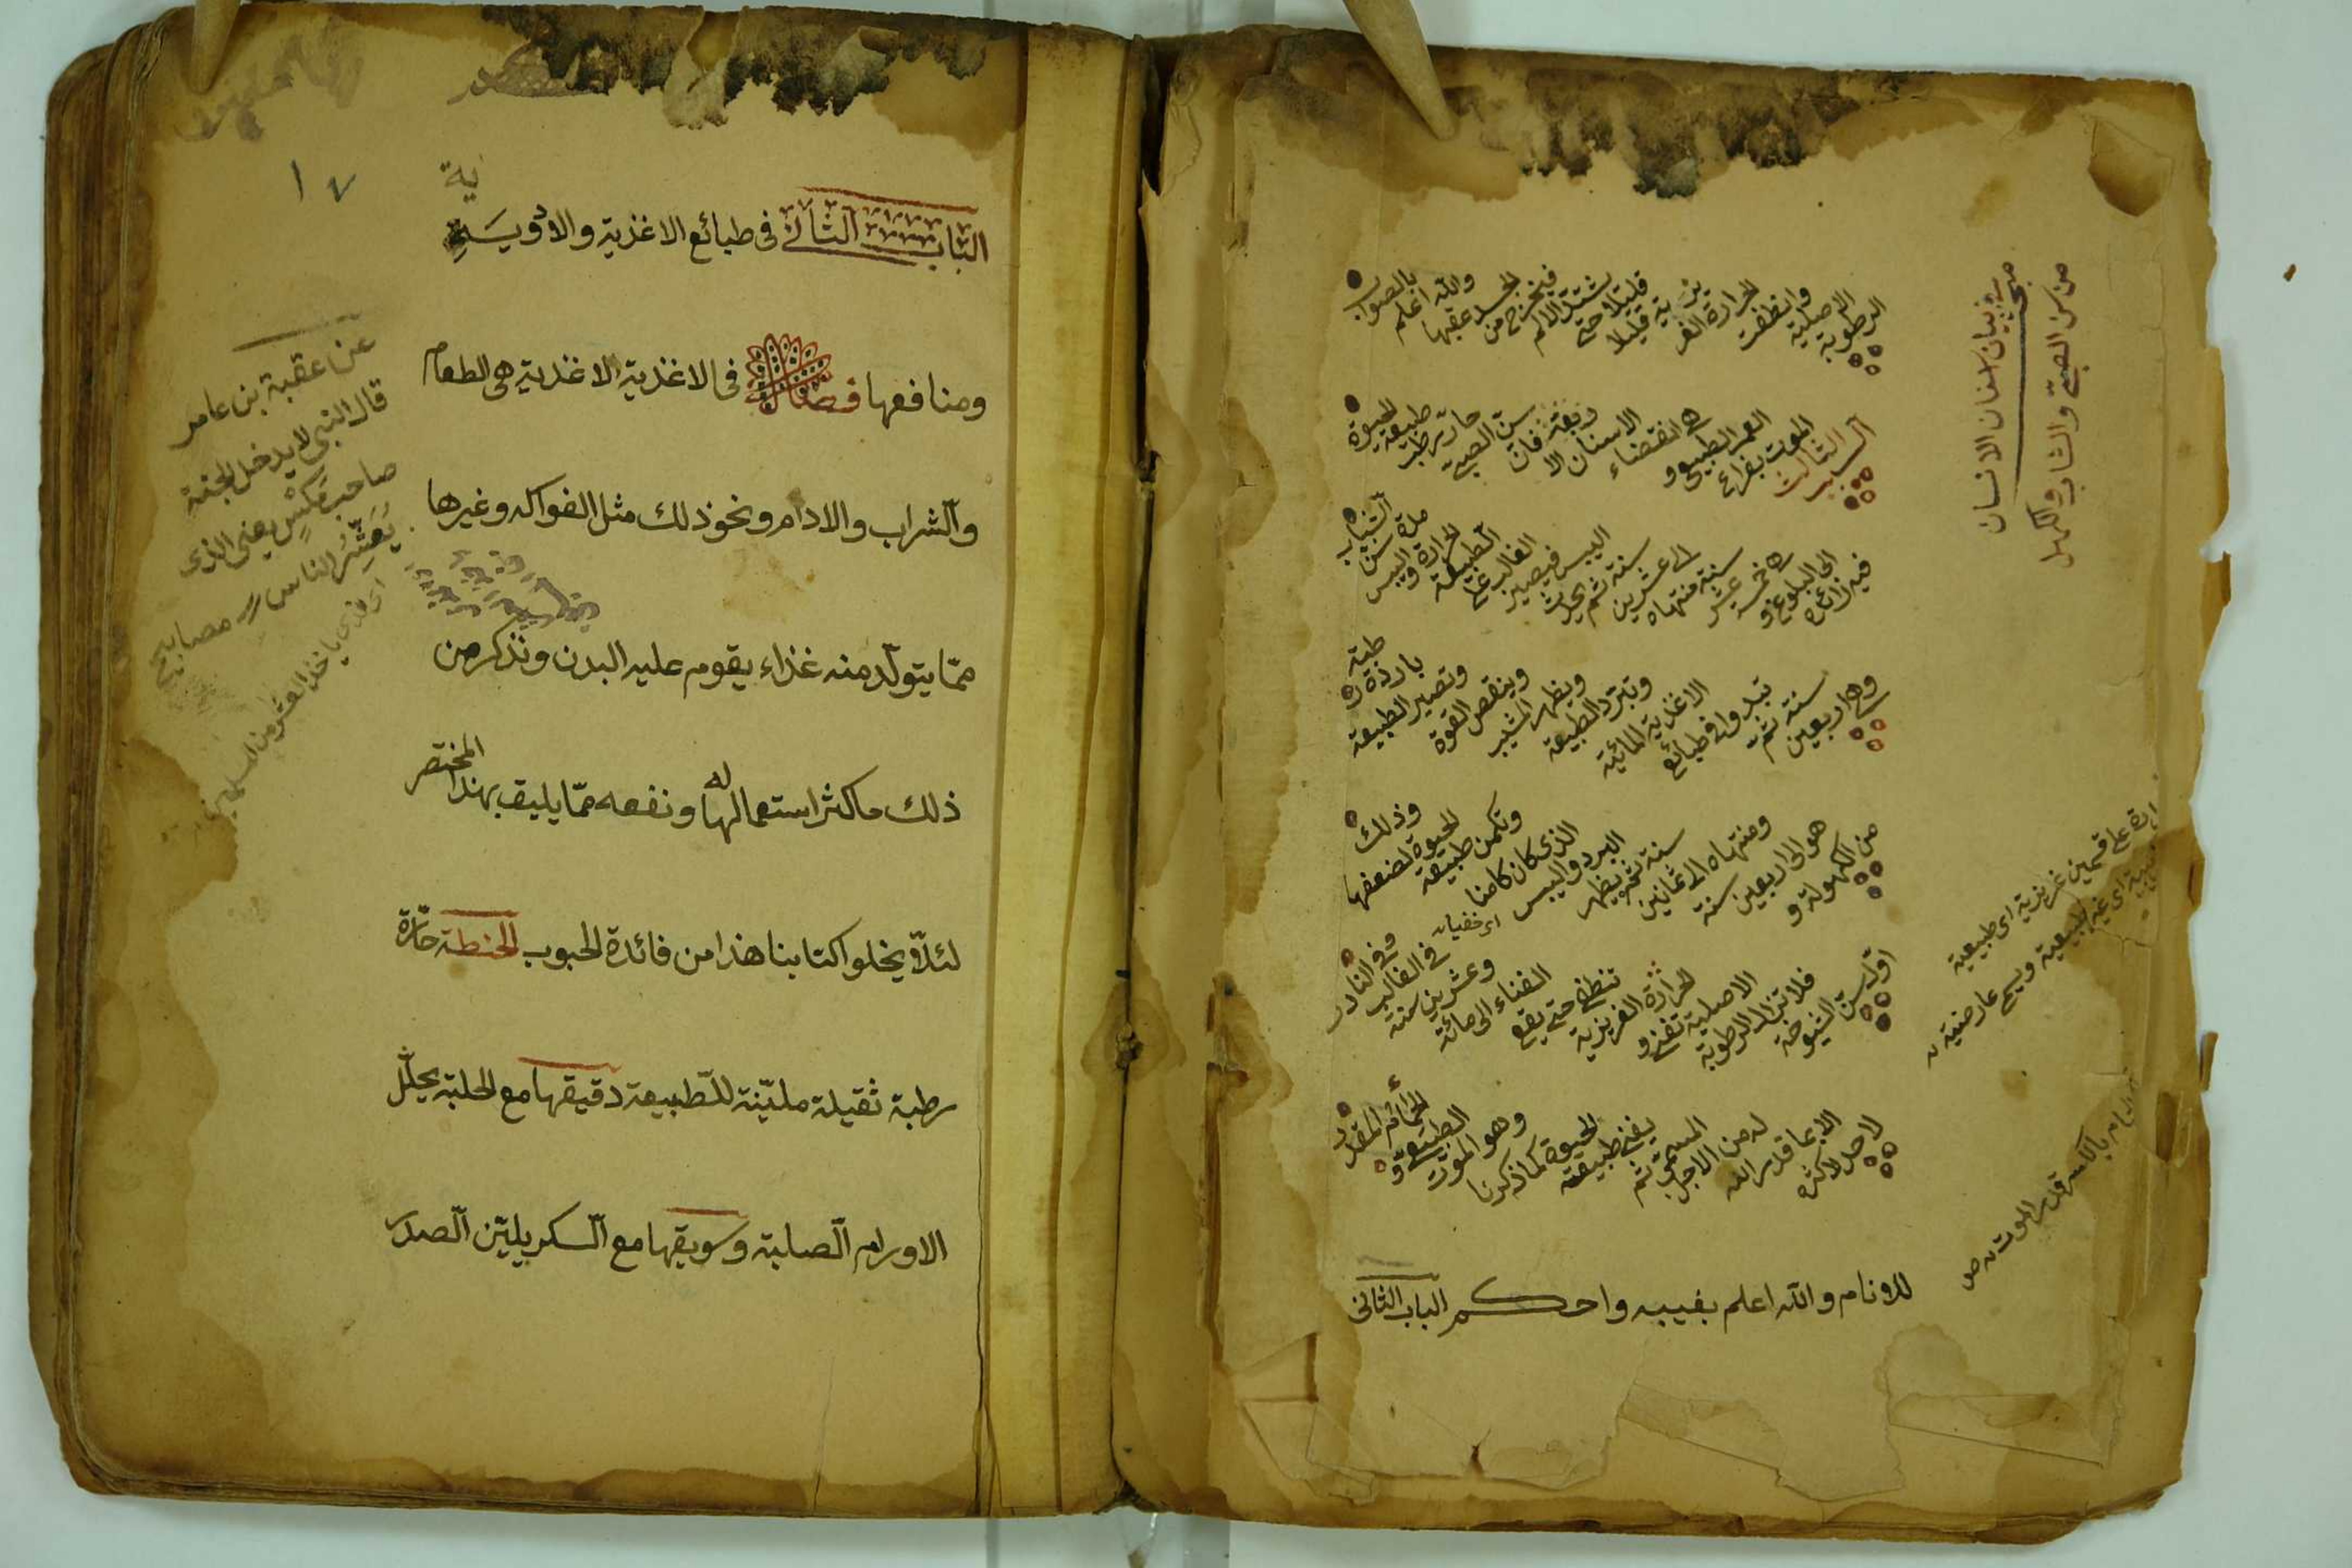 مبحث في بيان اسنان الانسان
من سن الصبي والشاب والكهل
الرطوبة
الاصلية
وانطفت
الحرارة الغر
يزية قليلا
قليلا حتى
يشتد الالم
فيخرج من
الجسد عقبها
والله اعلم
بالصواب
السبب الثالث
الموت بفراغ
العمر الطبيعي و
هي انقضاء
الاسنان الا
ربعة فان
سن الصبي
حار رطب
طبيعة
الحيوة
فيه زائدة
الى البلوغ و
هي خمسة عشر
سنة منتهاه
الى عشرين
سنة ثم يحدث
اليبس فيصير
الغالب على
الطبيعة
الحرارة واليبس
مدة سن
الشباب
وهي اربعين
سنة ثم
تبدوا في طبائع
الاغذية المائية
وتبرد الطبيعة
ويظهر الشيب
وينقص القوة
وتصير الطبيعة
باردة ر
طبة
من الكهولة و
هو الى اربعين سنة
ومنتهاه الى ثمانين
سنة ثم يظهر
البرد واليبس
الذى كان كامنا
اى خفيا
وتكمن طبيعة
الحيوة لضعفها
وذلك
اول سن الشيوخة
فلا تزال الرطوبة
الاصلية تفنى و
الحرارة الغريزية
تنطفى حتى يقع
الفناء الى مائة
وعشرين سنة
في الغالب
وفي النادر
لا حد لاكثره
الا بما قدر الله
له من الاجل
المسمى ثم
يفنى طبيعة
الحيوة كما ذكرنا
وهو الموت
الطبيعى و
الحمام المقدر
للانام والله اعلم بغيبه واحكم الباب الثانى
على قسمين غريزية اى طبيعية
اى غير طبيعية ويسمى عارضية
الحمام بالكسر قدر الموت ص
١٧
الباب الثانى فى طبائع الاغذية والادوية
ية
ومنافعها فصل فى الاغذية الاغذية هى الطعام
والشراب والادام ونحو ذلك مثل الفواكه وغيرها
مما يتولد منه غذاء يقوم عليه البدن ونذكر من
ذلك ما كثر استعمالها له ونفعه مما يليق بهذا المختصر
لئلا يخلوا كتابنا هذا من فائدة الحبوب الحنطة حارة
رطبة ثقيلة ملينة للطبيعة دقيقها مع الحلبة يحلل
الاورام الصلبة وسويقها مع السكر يلين الصدر
عن عقبة بن عامر
قال النبي لا يدخل الجنة
صاحب مكس يعنى الذى
يعشر الناس مصابيح
اى الذى ياخذ العشر من المسلمين